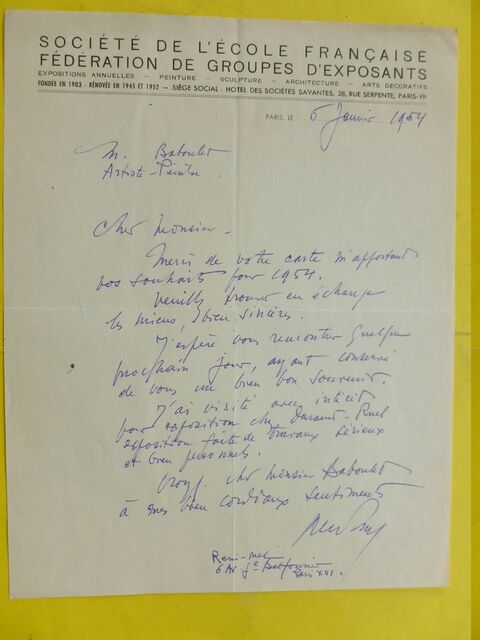 SOCIÉTÉ DE L'ÉCOLE FRANÇAISE
FÉDÉRATION DE GROUPES D'EXPOSANTS
EXPOSITIONS ANNUELLES — PEINTURE — SCULPTURE — ARCHITECTURE — ARTS DÉCORATIFS
FONDÉE EN 1903 - RÉNOVÉE EN 1945 ET 1952 — SIÈGE SOCIAL : HOTEL DES SOCIÉTÉS SAVANTES, 28, RUE SERPENTE, PARIS-VIe
PARIS, LE 6 Janvier 1954
M. Baboulet
Artiste-Peintre
Cher Monsieur -
Merci de votre carte m'apportant
vos souhaits pour 1954.
Veuillez trouver en échange
les miens, bien sincères.
J'espère vous rencontrer quelque
prochain jour, ayant conservé
de vous un bien bon souvenir.
J'ai visité avec intérêt
exposition chez Durand-Ruel
exposition faite de travaux sérieux
et bien personnels.
Croyez, cher Monsieur Baboulet
à mes bien cordiaux sentiments
6 Av. Gal
Paris XVI.